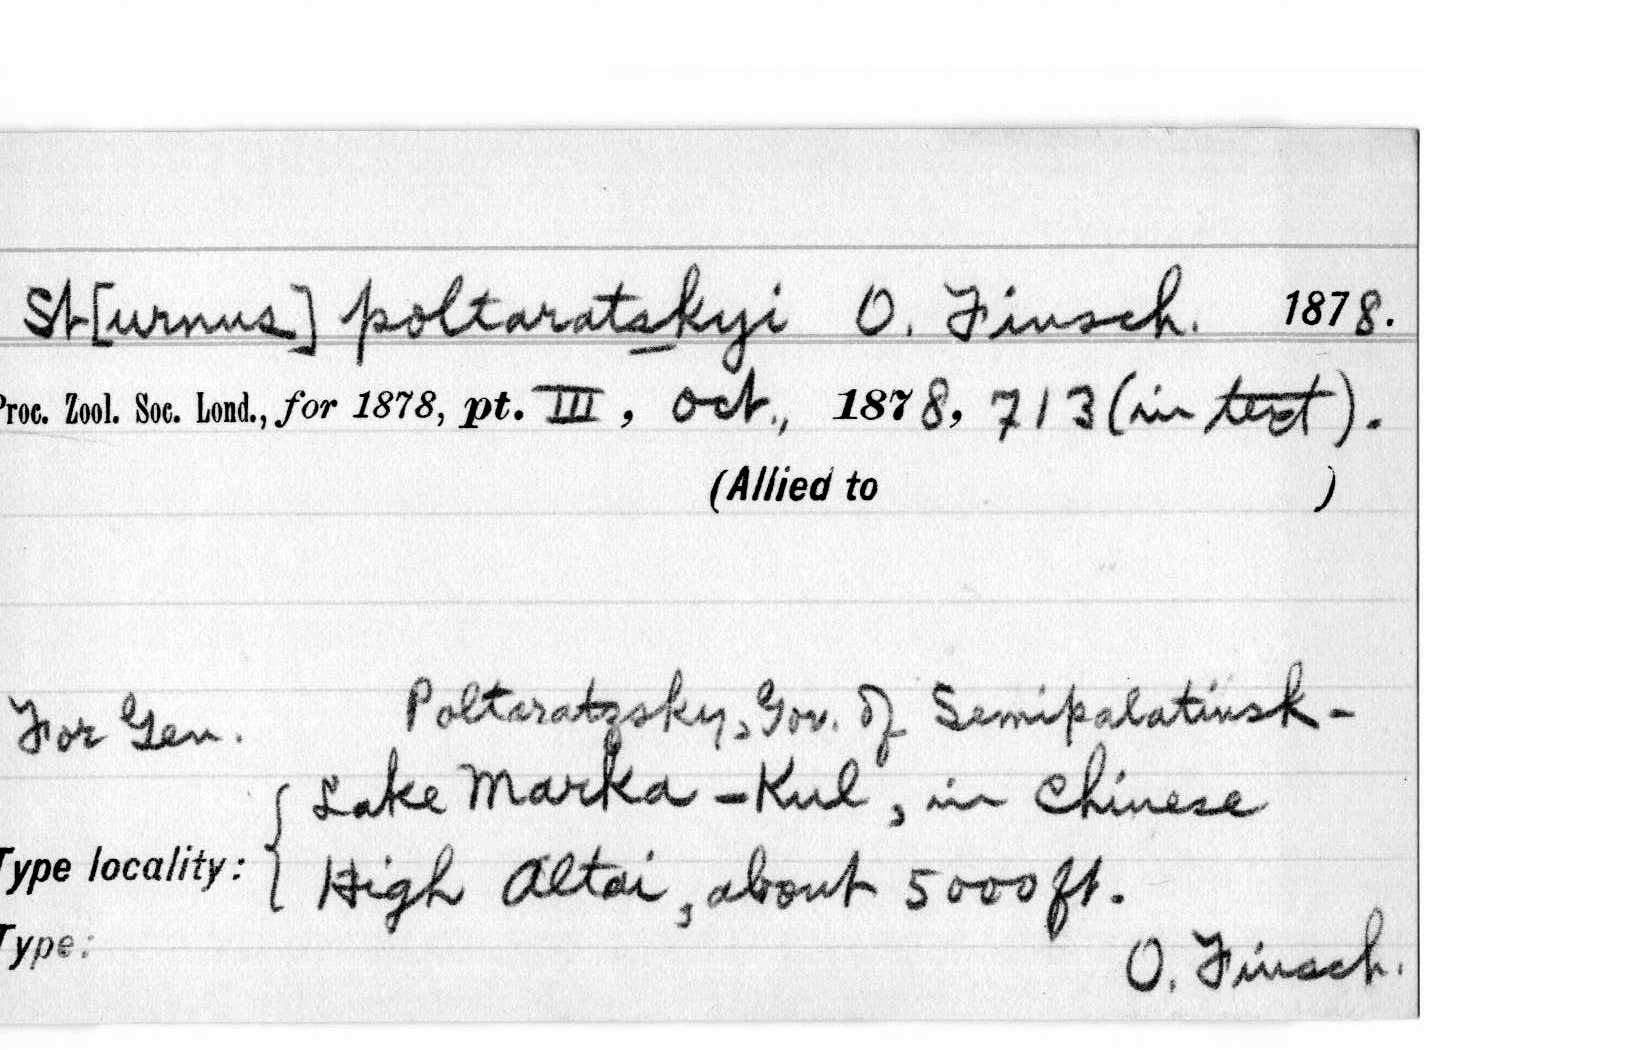 St[urnus] poltaratskyi O. Finsch. 1878.
Proc. Zool. Soc. Lond., for 1878, pt. III, Oct., 1878, 713 (in text).
(Allied to )
For Gen. Poltaratzsky, Gov. of Semipalatinsk-
Lake Marka-Kul, in Chinese
Type locality: { High Altai, about 5000 ft.
Type:
O. Finsch.